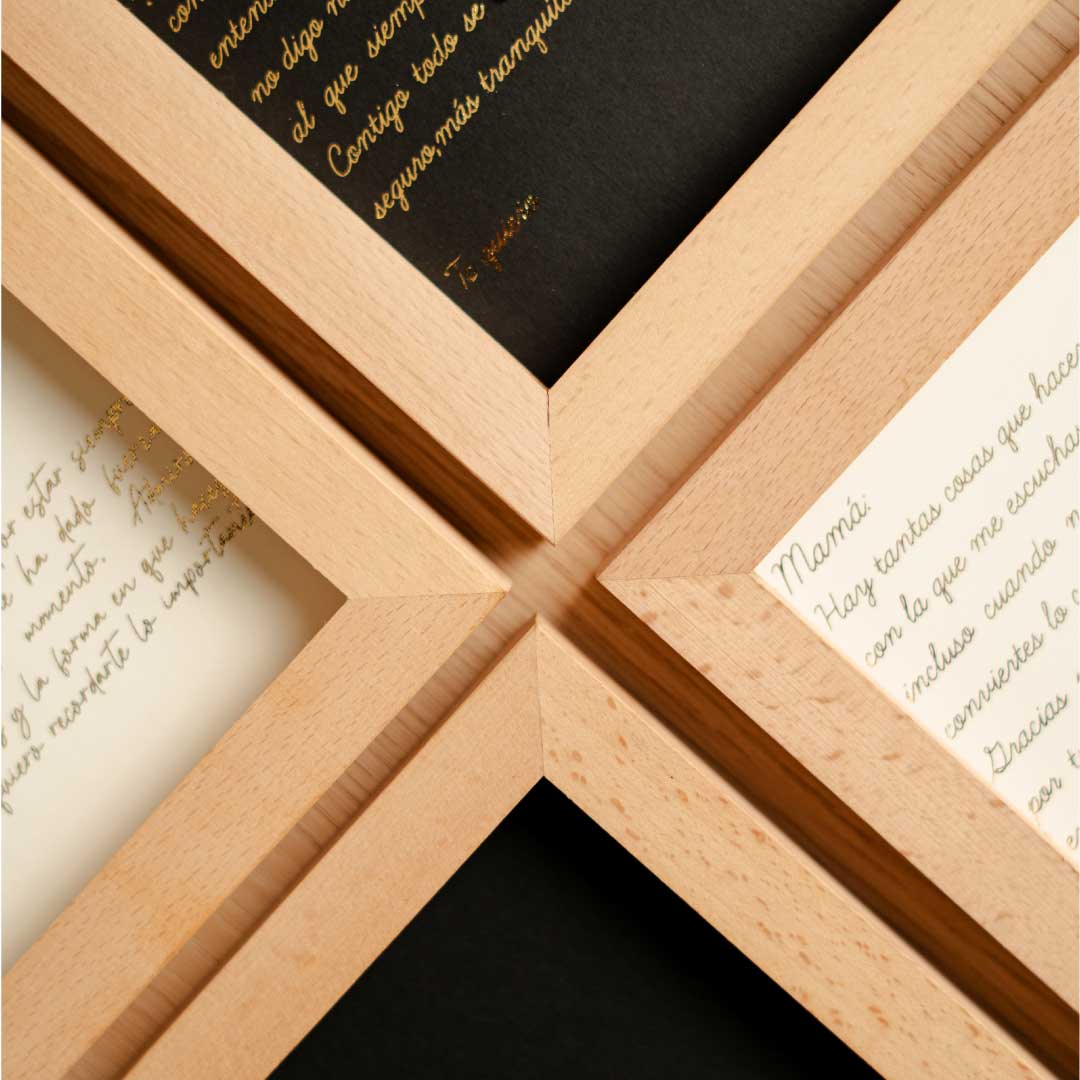 con
no digo
al que siemp
Contigo todo se
seguro,más tranquilo
Te quiero
or estar siempre
e ha dado fuerza
momento.
y la forma en que haces
quiero recordarte lo importante
Mamá:
Hay tantas cosas que haces
con la que me escuchas
incluso cuando n
conviertes lo c
Gracias
por t